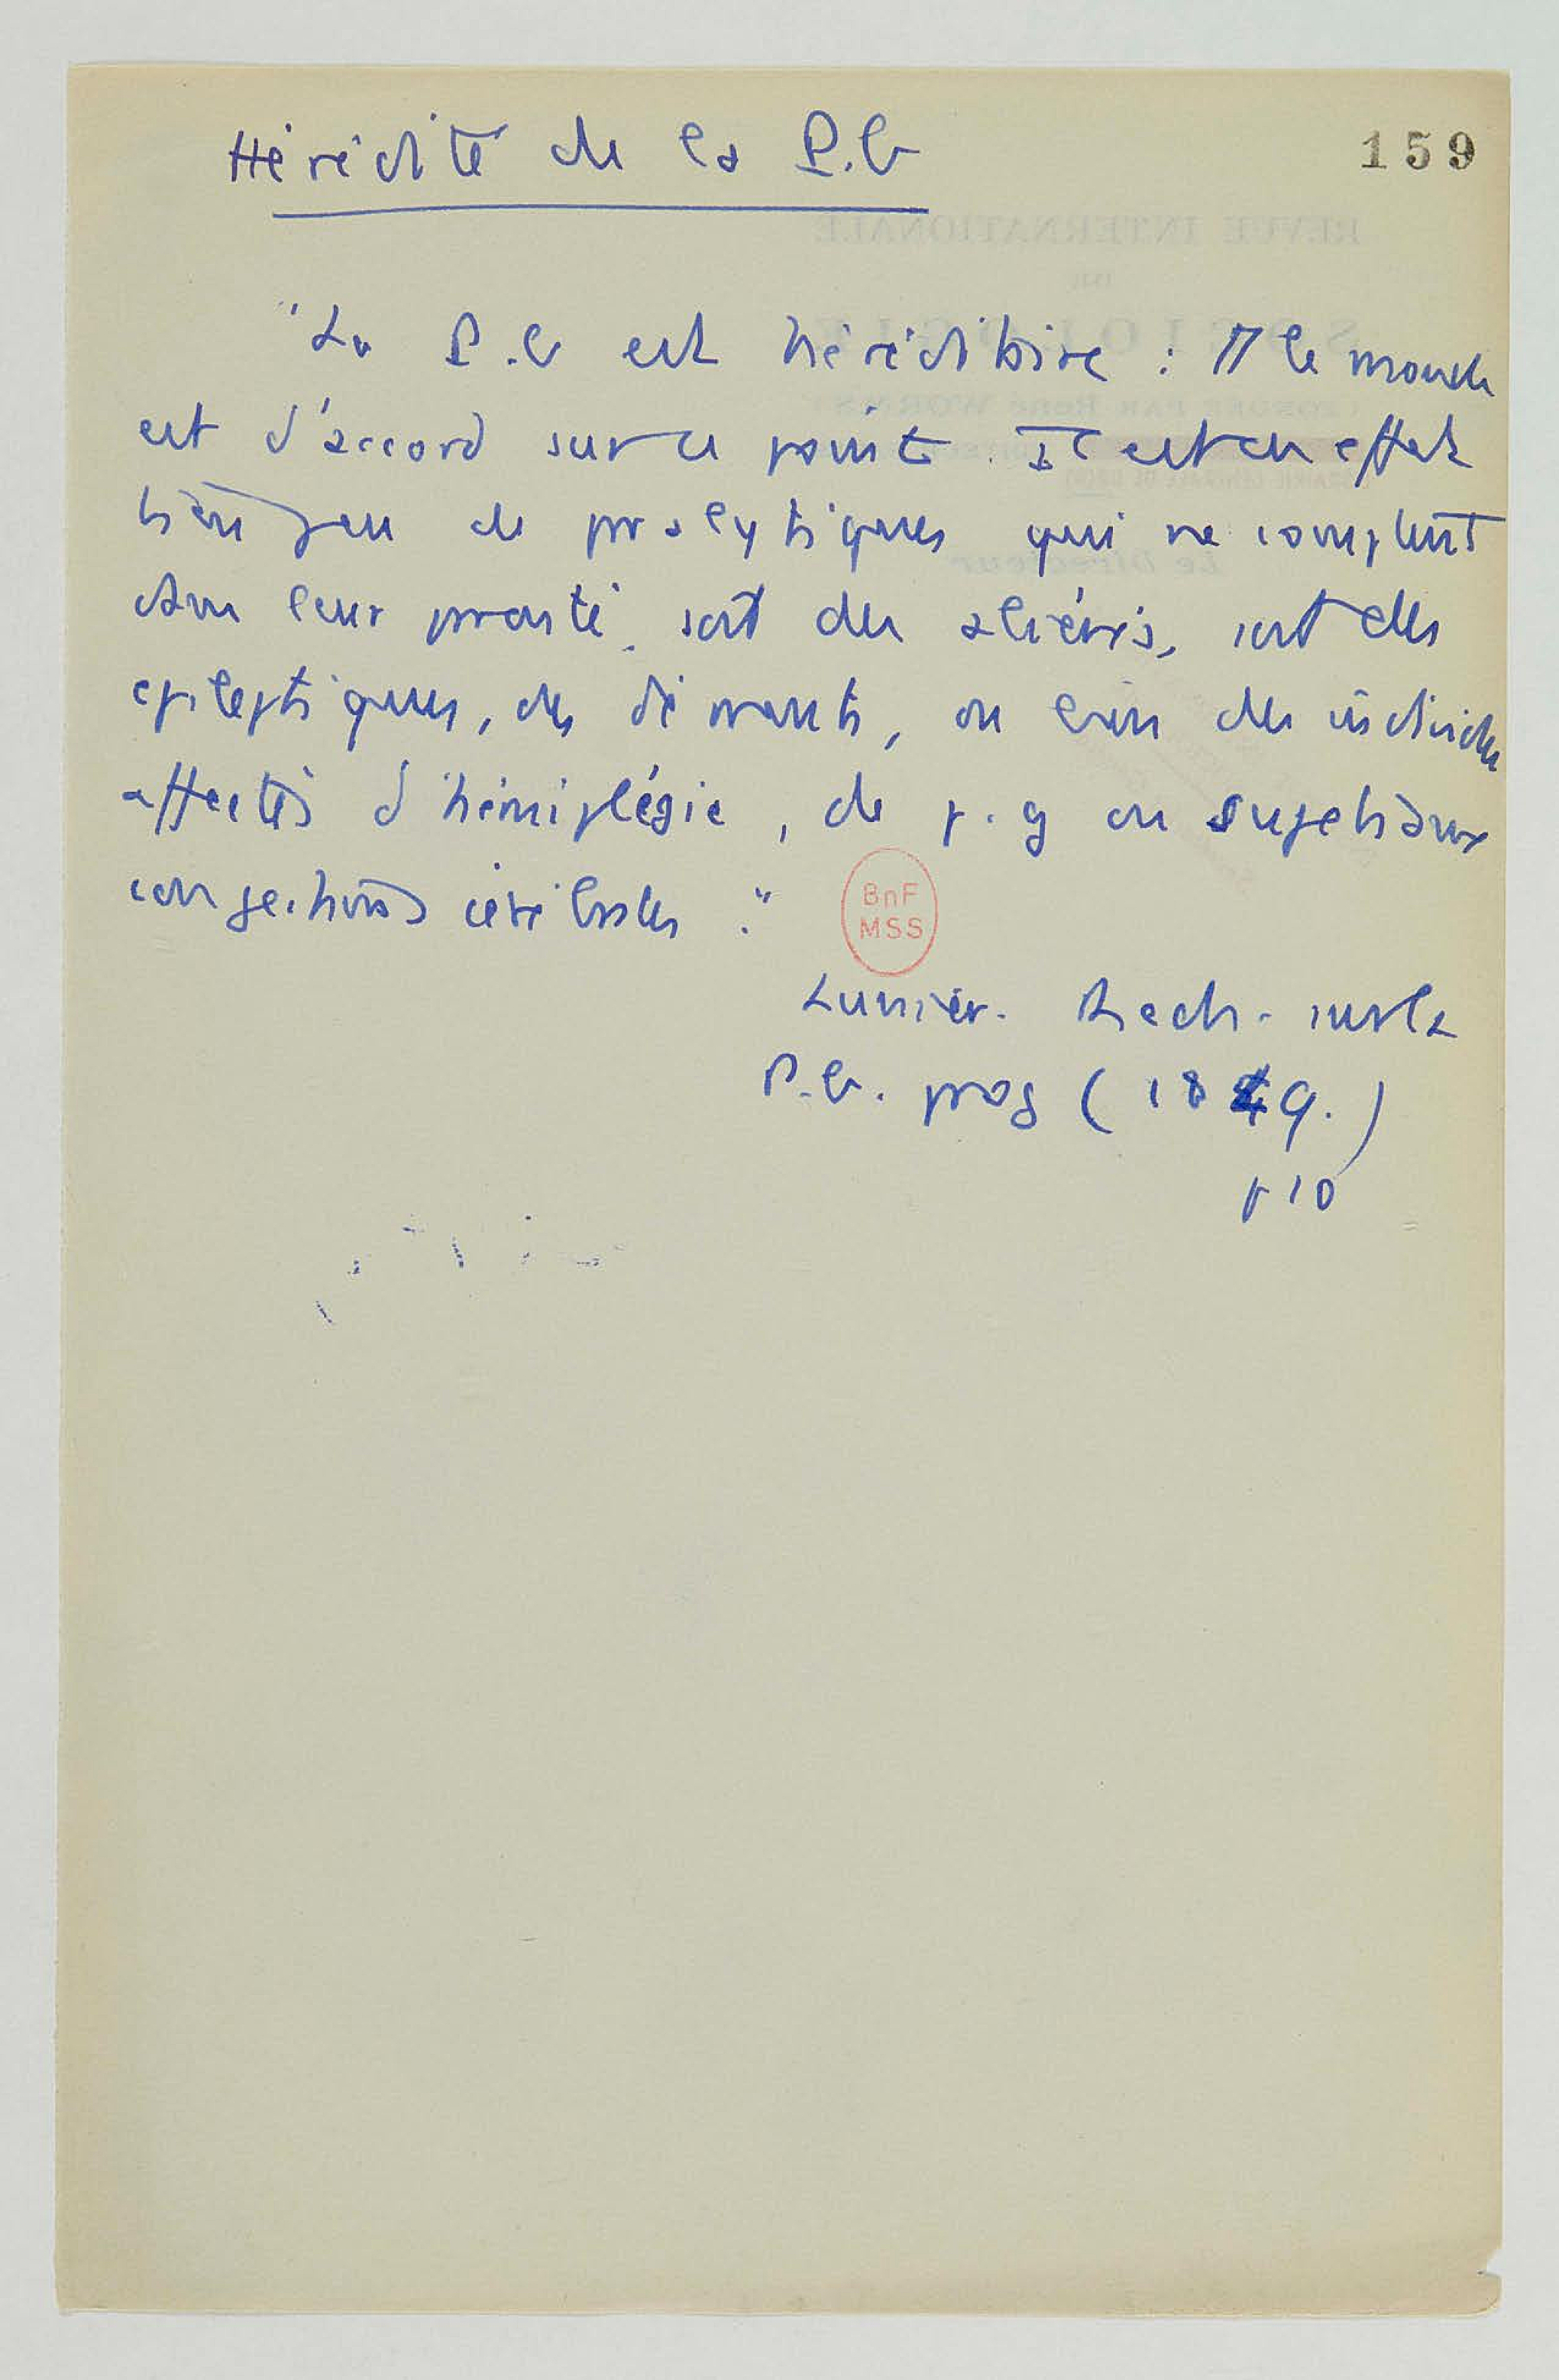 Hérédité de la P.G
159
"La P.G est héréditaire : TT le monde
est d'accord sur ce point. Il est en effet
bien peu de pralytiques qui ne comptent
dans leur parenté, soit des aliénés, soit des
epileptiques, des déments, ou bien des individus
affectés d'hémiplégie, de p.g ou sujets aux
congestions cérébrales."
BnF
MSS
Lunier. Rech. sur la
P.G. prog (1849.)
p 10
REVUE INTERNATIONALE
DE
SOCIOLOGIE
FONDÉE PAR René WORMS
Le Directeur